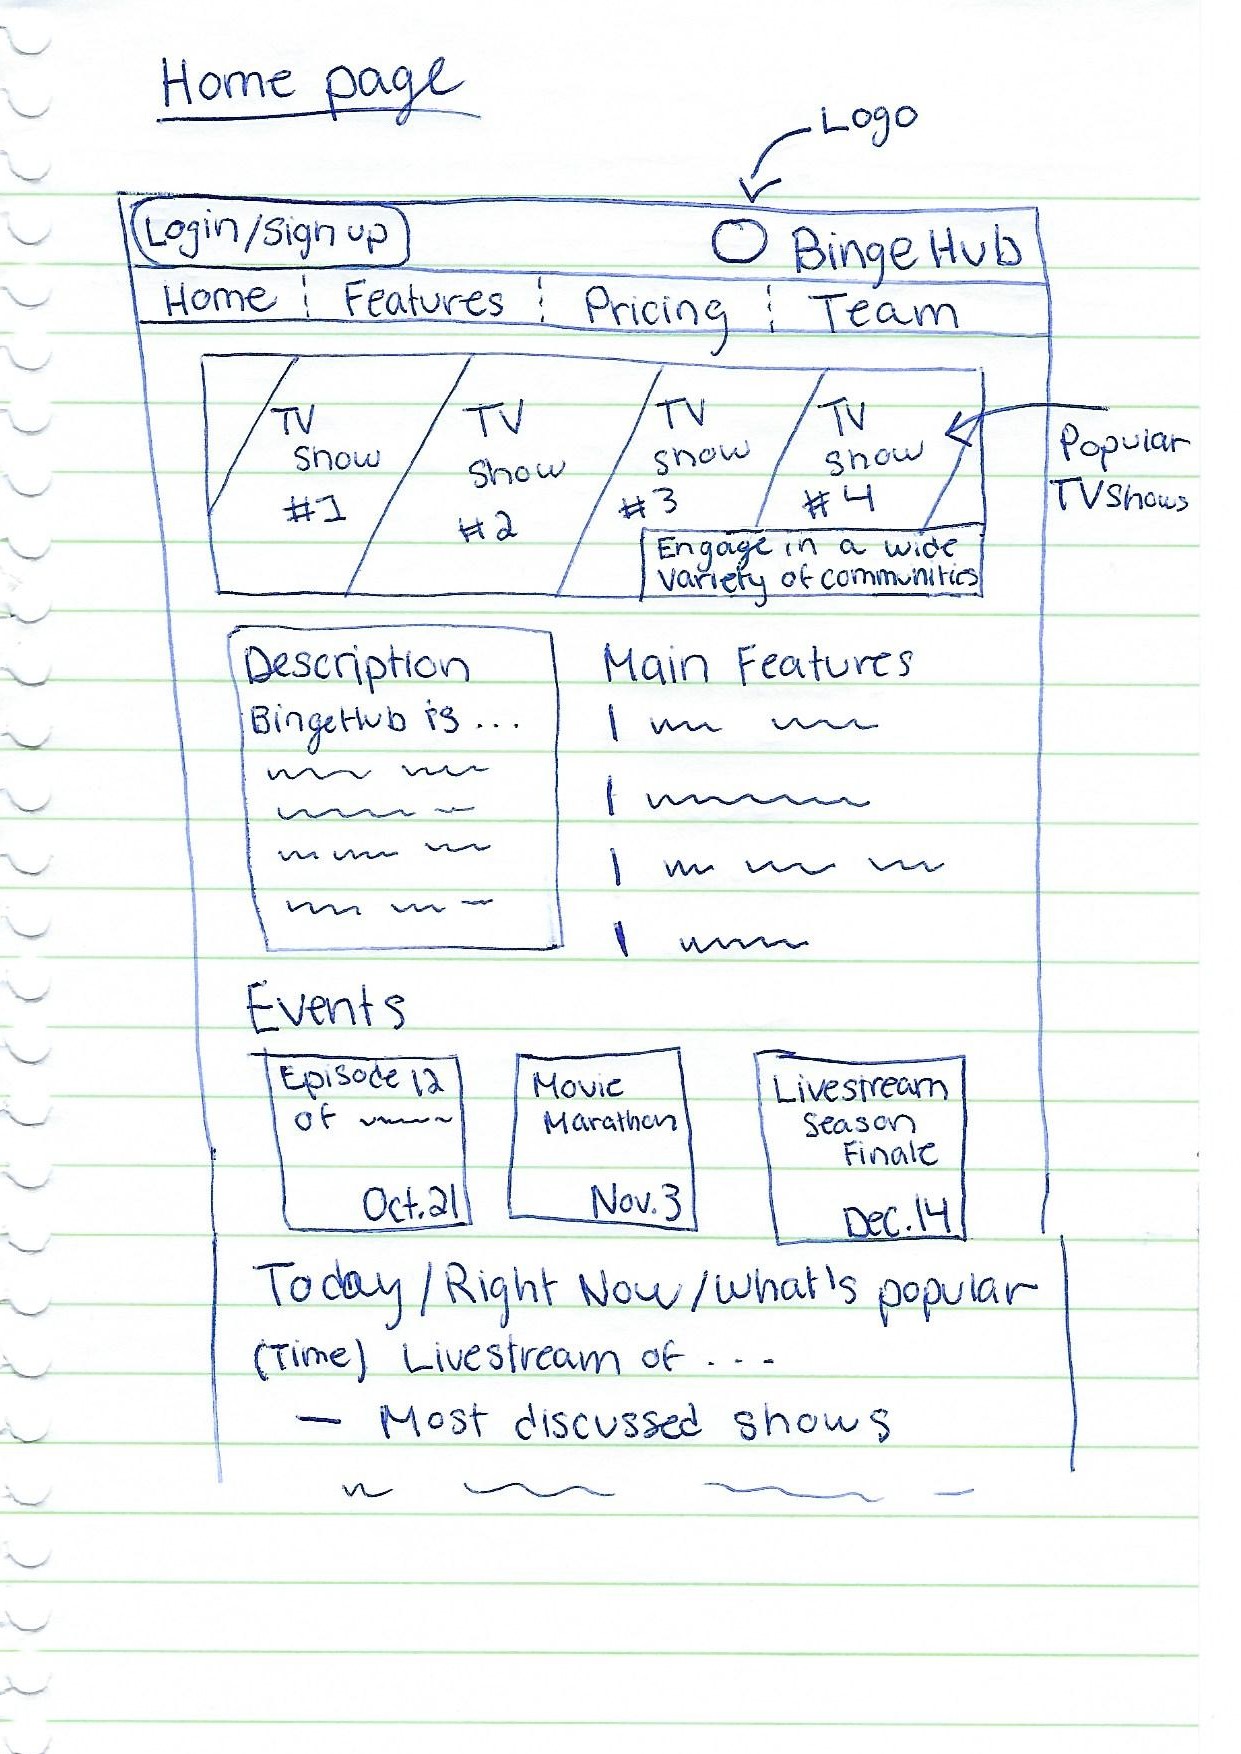 Home page
Logo
Login/Sign up
BingeHub
Home
Features
Pricing
Team
TV
Show
#1
TV
Show
#2
TV
Show
#3
TV
Show
#4
Popular
TV Shows
Engage in a wide
variety of communities
Description
BingeHub is ...
Main Features
Events
Episode 12
of
Oct.21
Movie
Marathon
Nov.3
Livestream
Season
Finale
Dec.14
Today/Right Now/What's popular
(Time) Livestream of ...
— Most discussed shows